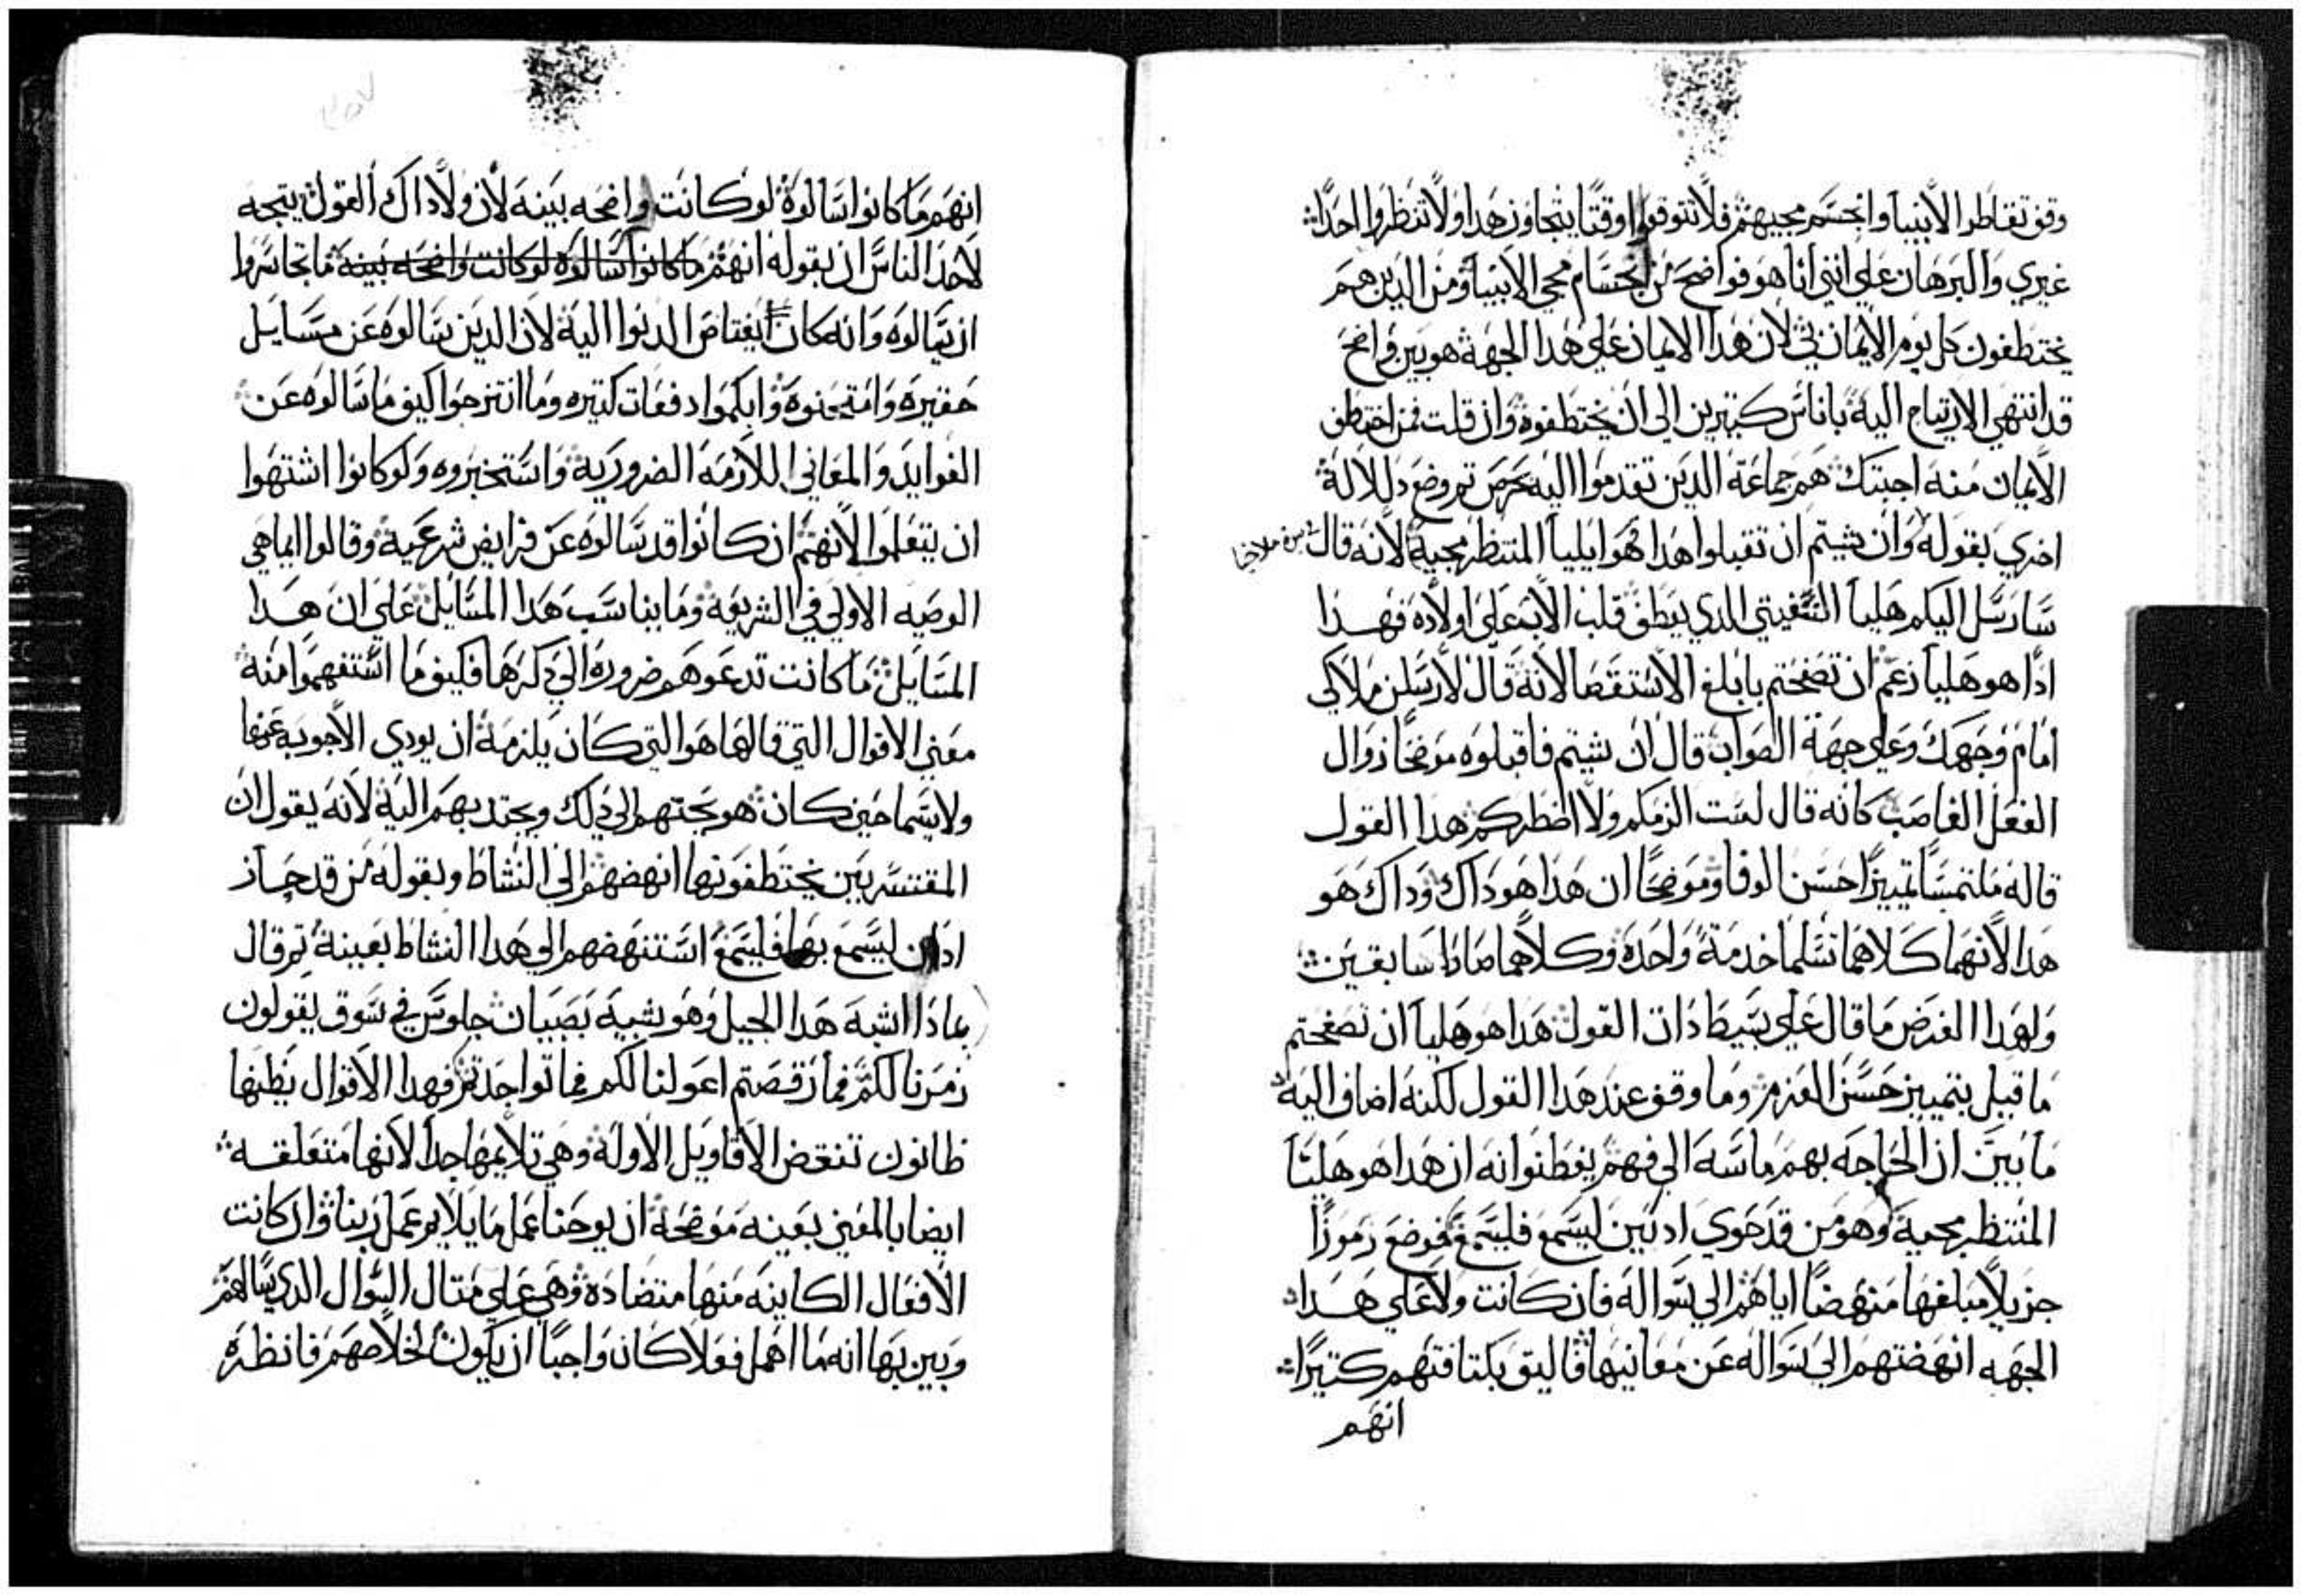 وقف تقاطر الانبيا وانحسم مجيهم فلا تتوقعوا وقتًا يتجاوز هدا ولا تنظروا احدًا
غيري والبرهان علي انني انا هو فواضح من انحسام مجي الانبيا ومن الدين هم
يختطفون كل يوم الايمان بي لان هدا الايمان علي هدا الجهة هو بين واضح
قد انتهي الارتياح اليه باناس كتيرين الي ان يختطفوه وان قلت فمن اختطف
الايمان منه اجبتك هم جماعة الدين تقدموا اليه بحرص تم وضع دلالة
اخري بقوله وان شيتم ان تقبلوا هدا فهو ايليا المنتظر مجية لانه قال
سارسل اليكم هليا التسفيتي الدي يعطف قلب الاب علي اولاده فهدا
ادًا هو هليا زعم ان تصفحتم بابلغ الاستقصا لانه قال لارسلن ملاكي
امام وجهك وعلي جهة الصواب قال ان شيتم فاقبلوه موضحًا زوال
الفعل الغاصب كانه قال لست الزمكم ولا اضطركم هدا القول
قاله ملتمسًا تمييزًا حسن الوفا وموضحًا ان هدا هو داك وداك هو
هدا لانهما كلاهما تسلما خدمة واحدة وكلاهما صارا سابقين
ولهدا الغرض ما قال علي بسيط دات القول هدا هو هليا ان تصفحتم
ما قيل بتمييز حسن العزم وما وقف عند هدا القول لكنه اضاف اليه
ما بين ان الحاجه بهم ماسه الي فهم يفطنوا انه ان هدا هو هليا
المنتظر مجية وهو من قد حوي ادنين ليسمع فليسمع فوضع رموزًا
جزيلا مبلغها منهضًا اياهم الي سواله فان كانت ولا علي هدا
الجهه انهضتهم الي سواله عن معانيها فاليق بكتافتهم كتيرًا
انهم
انهم ما كانوا سالوه لو كانت واضحه بينه لان ولا داك القول يتجه
لاحد الناس ان يقوله انهم ما كانوا سالوه لو كانت واضحه بينه ما تجاسروا
ان يسالوه وانه كان يغتاص الدنوا اليه لان الدين سالوه عن مسايل
حقيره وامتحنوه وابكموا دفعات كتيره وما انتزحوا كيف ما سالوه عن
الفوايد والمعاني اللازمه الضرورية واستخبروه ولو كانوا اشتهوا
ان يتعلموا لانهم ان كانوا قد سالوه عن فرايض شرعية وقالوا ايما هي
الوصيه الاولي في الشريعة وما يناسب هدا المسايل علي ان هدا
المسايل ما كانت تدعوهم ضروره الي دكرها فكيف ما استفهموا منه
معني الاقوال التي قالها هو التي كان يلزمه ان يودي الاجوبه عنها
ولا سيما حين كان هو يحتهم الي دلك ويجتدبهم اليه لانه يقول ان
المقتسريين يختطفونها انهضهم الي النشاط وبقوله من قد حاز
ادان ليسمع بها فليسمع استنهضهم الي هدا النشاط بعينه تم قال
بمادا اشبه هدا الجيل وهو شبيه بصبيان جلوس في سوق يقولون
زمرنا لكم فما رقصتم اعولنا لكم فما تواجدتم فهدا الاقوال يظنها
ظانون تنقض الاقاويل الاولة وهي تلايمها جدًا لانها متعلقه
ايضا بالمعني بعينه موضحة ان يوحنا عمل ما يلايم عمل ربنا وان كانت
الافعال الكاينه منها متضادة وهي علي متال السوال الدي سالهم
وبين بها انه ما اهمل فعلا كان واجبًا ان يكون لخلاصهم فانظره